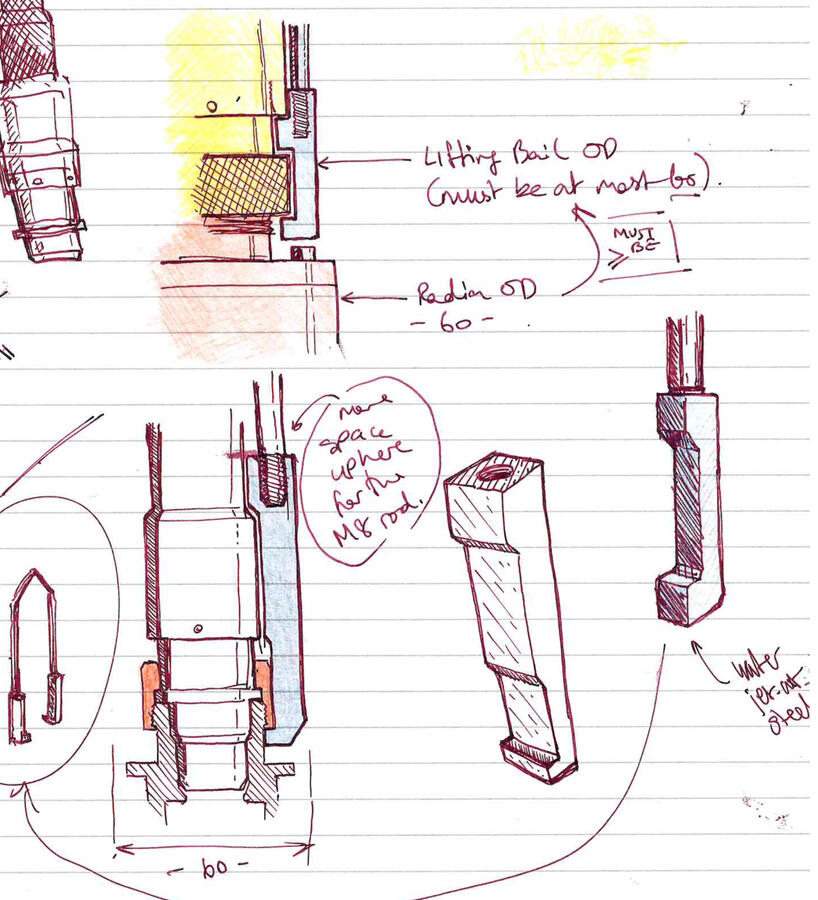 Lifting Bail OD
(must be at most 60).
MUST
≥ BE
Radian OD
- 60 -
more
space
up here
for the
M8 rod.
water
jet-cut
steel
- 60 -